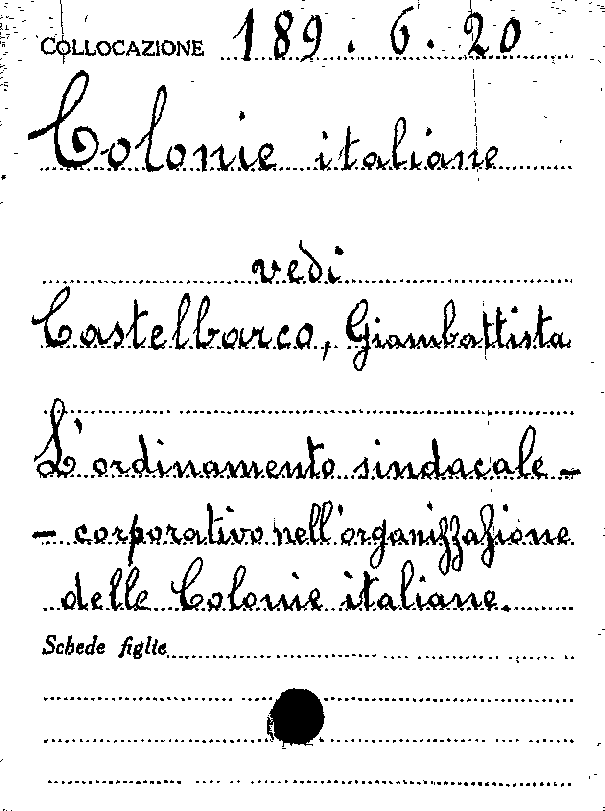 COLLOCAZIONE 189. 6. 20
Colonie italiane
vedi
Castelbarco, Giambattista
L'ordinamento sindacale -
- corporativo nell'organizzazione
delle Colonie italiane.
Schede figlie